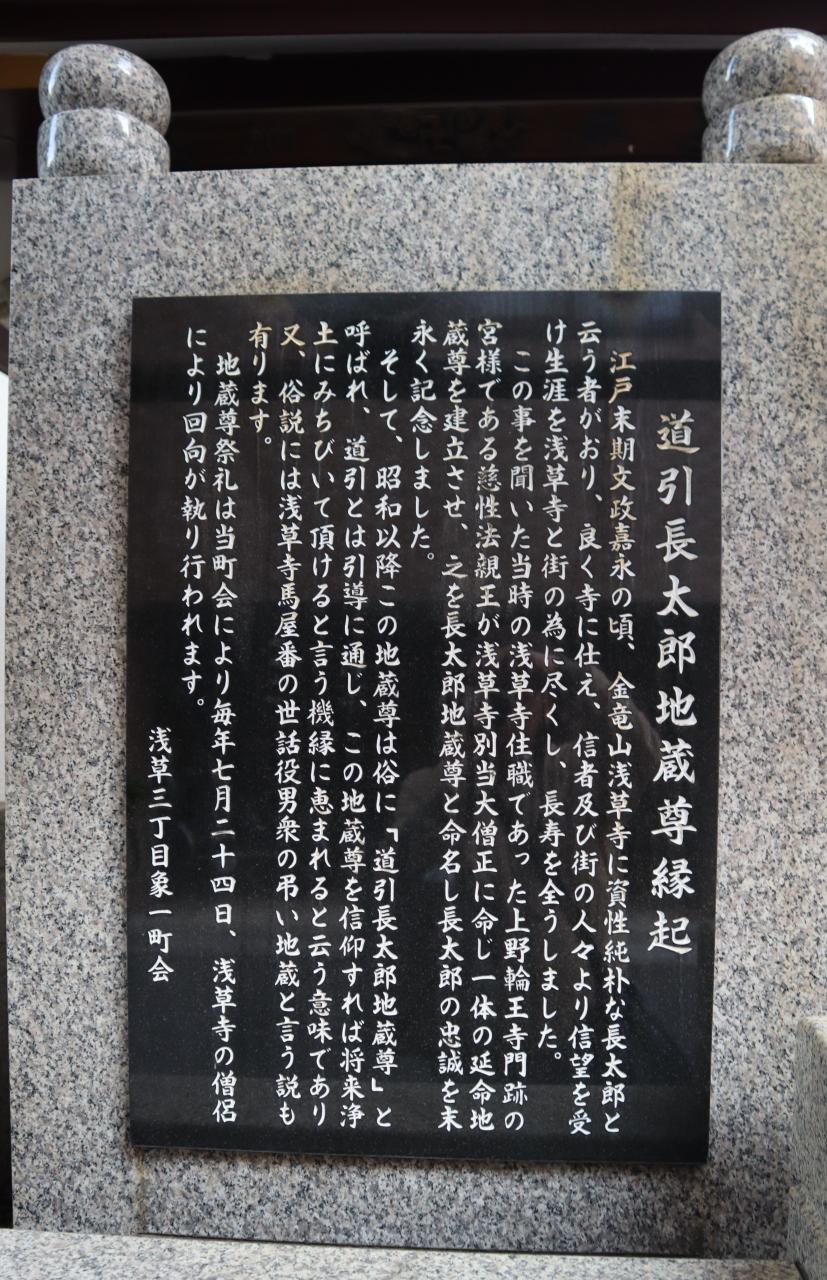 道引長太郎地蔵尊縁起
江戸末期文政嘉永の頃、金竜山浅草寺に資性純朴な長太郎と
云う者がおり、良く寺に仕え、信者及び街の人々より信望を受
け生涯を浅草寺と街の為に尽くし、長寿を全うしました。
この事を聞いた当時の浅草寺住職であった上野輪王寺門跡の
宮様である慈性法親王が浅草寺別当大僧正に命じ一体の延命地
蔵尊を建立させ、之を長太郎地蔵尊と命名し長太郎の忠誠を末
永く記念しました。
そして、昭和以降この地蔵尊は俗に「道引長太郎地蔵尊」と
呼ばれ、道引とは引導に通じ、この地蔵尊を信仰すれば将来浄
土にみちびいて頂けると言う機縁に恵まれると云う意味であり
又、俗説には浅草寺馬屋番の世話役男衆の弔い地蔵と言う説も
有ります。
地蔵尊祭礼は当町会により毎年七月二十四日、浅草寺の僧侶
により回向が執り行われます。
浅草三丁目象一町会